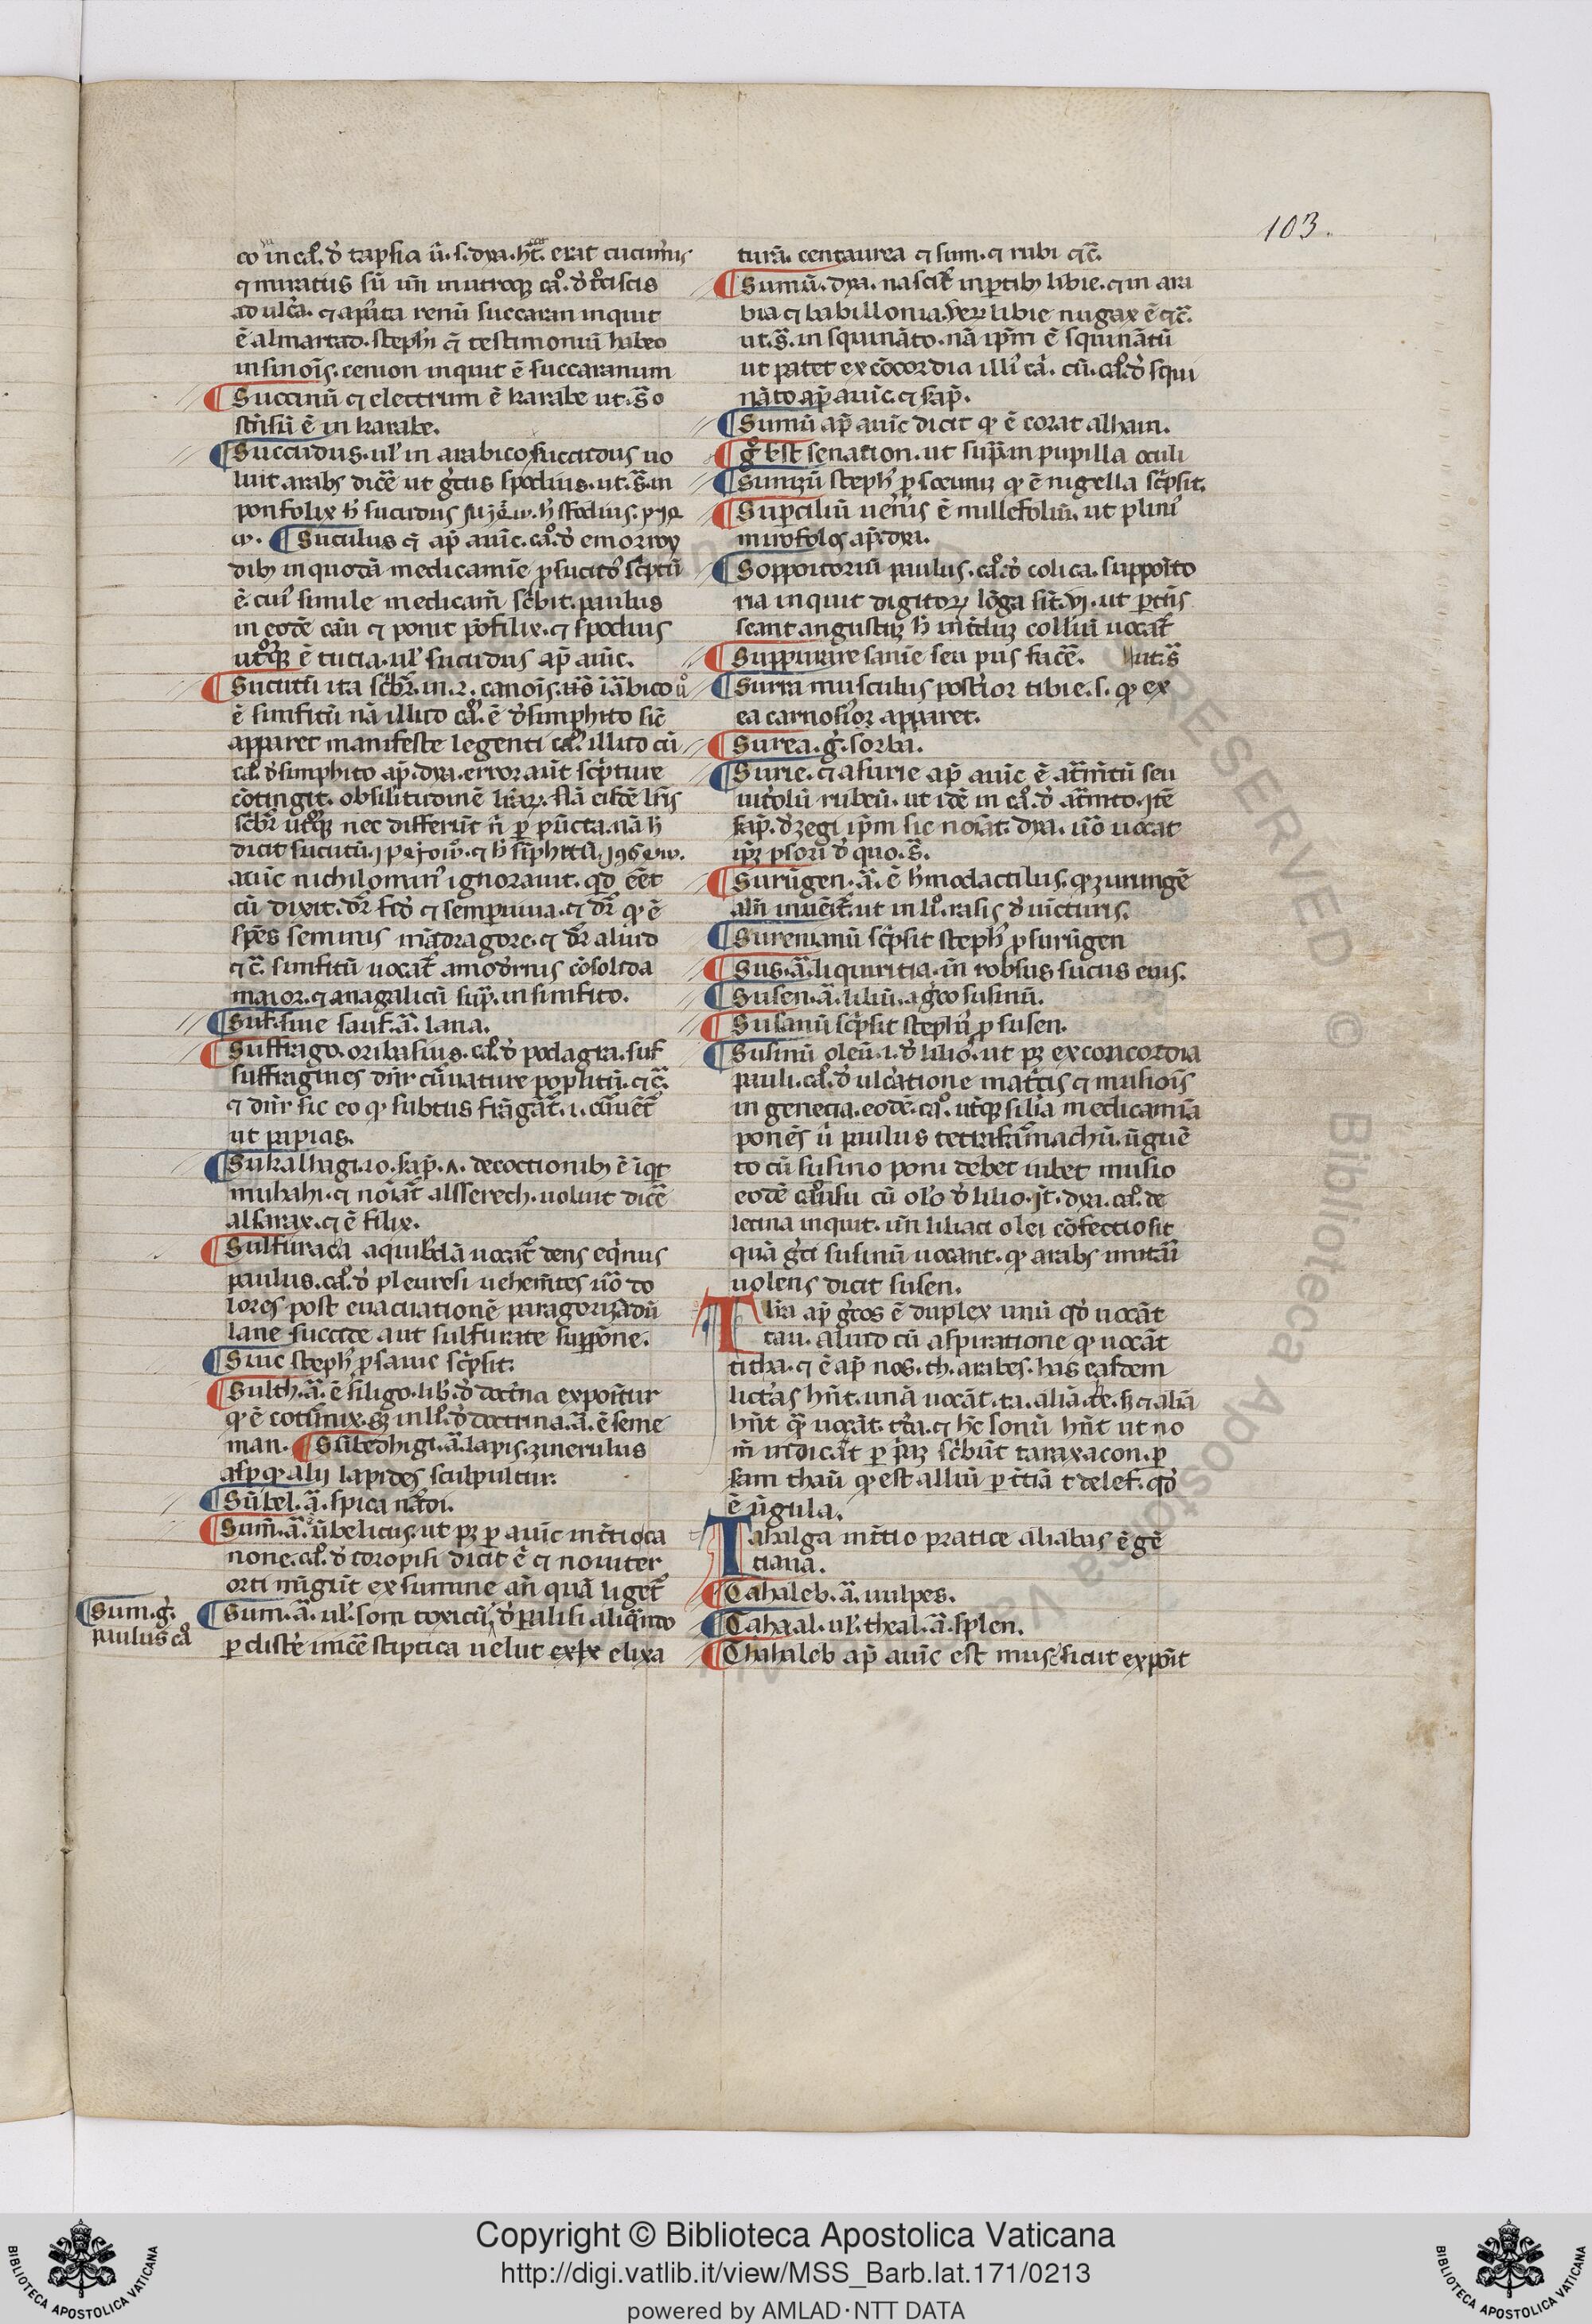 103.
co in ca°. d̓ tapsia ū. s. dya. hr̄. erat cucum̄us
⁊ miratus sū un̄ in utroqꝫ ca°. d̓ t°ciscis
ad ulc̓a. ⁊ ap̓ita renū succaran inquit
ē almartad. steph̓i ⁊ testimoniū habeo
in sinoīs. cenion inquit ē succaranum
Succinū ⁊ electrum ē karabe ut. s̄ o
stn̄sū ē in karabe.
Succidus. ul̓ in arabico succidus uo
luit arabs dicē ut gr̓cus spodius. ut. s̄. in
ponfolix h̄ sucudus
Suculus ⁊ ap̄ auic̄. ca°. d̓ emorroy
dibꝫ in quodā medicamīe ꝓ sucido sc̓ptū
ē. cui̓ simile medicam̄ sc̓bit. paulus
in eodē cāu ⁊ ponit pōfilix. ⁊ spodius
ut°qꝫ ē tutia. ul̓ sucudus ap̄ auic̄.
Sucutū ita sc̓br̄. in. 2. canoīs. īs̄ īābico ū°
ē simfitū nā illud ca°. ē d̓ simphito sic̄
apparet manifeste legenti ca°. illud cū
ca°. d̓ simphito ap̄. dya. error aūt sc̓pture
cōtingit. ob silītudinē līārꝝ. Nā eisdē lr̄is
sc̓br̄ ut°qꝫ nec differūt n̄ ꝑ pūcta. nā h̄
dicit sucutū
auic̄ nichilomin̓ ignorauit. qd̓ eēt
cū dixit. dr̄ fi̓d ⁊ semperuiua. ⁊ dr̄ ꝙ ē
spēs seminis mādragore. ⁊ dr̄ aliud
⁊c̄. simfitū uocat̄ a mod̓nis cōsolida
maior. ⁊ anagalicū sup̄. in simfito.
Suf. siue sauf. ā. lana.
Suffrago. oribasius. ca°. d̓ podagra. suf
suffragines dn̄r cūuature poplitū. ⁊c̄.
⁊ dn̄r sic eo ꝙ subtus frāgāt̄. i. cūuēt̄
ut papias.
Sukalhagi. io. sap̄. ʌ. decoctionibꝫ ē īqt
mubahi. ⁊ noīat̄ alsserech. uoluit dicē
alsarax. ⁊ ē filix.
Sulfuraca a quibꝰdā uocat̄ dens eq̓nus
paulus. ca°. d̓ pleuresi uehem̄tes ūo do
lores post euacuationē paragorizādū
lane succide aut sulfurate suppōne.
Siuic steph̓ ꝓ sauic sc̓psit.
Sulth. ā. ē siligo. lib̓. d̓ doct̓na expoītur
ꝙ ē coturnix. sꝫ in li̓. d̓ doctrina. ā. ē seme
man. Sūbedhigi. ā. lapis. zinerulus
asp̓ ꝙ alij lapides sculpultur.
Sūbel. ā. spica nādi.
Sum̄. ā. ūbelicus. ut pꝫ ꝑ auic̄ in t̓tio ca
none. ca°. d̓ ydropisi dicit ē ⁊ nouiter
orti mīgūt ex sumine an̄ quā liget̄
Sum. ā. ul̓. som toxicū d̓ palisi aliqn̄do
ꝑ clistē inicē stiptica uelut exlx elixa
Sum. g̓.
paulus ca°
turā. centaurea ⁊ sum. ⁊ rubi ⁊c̄.
Sumū. dya. nascit̄ in ꝑtibꝫ libie. ⁊ in ara
bia ⁊ babillonia. Verꝝ libie nugax ē ⁊c̄.
ut. s̄. in squināto. nā ip̄m ē squinātū
ut patet ex cōcordia illi̓ ca̓. cū. ca°. d̓ squi
nāto ap̄ auic̄. ⁊ sap̄.
Sumū ap̄ auic̄ dicit ꝙ ē corat alham.
g° est senation. ut sup̄ in pupilla oculi
Sunizū steph̓ ꝓ sceuniz ꝙ ē nigella sc̓psit.
Suꝑciliū uen̄is ē millefoliū. ut plini̓
mirofolos ap̄ dya.
Soppoitoriū paulus. ca°. d̓ colica. suppoīto
ria inquit digitoꝝ lōga sīt. vj. ut ꝑtūs
seant angustiꝫ h̄ int̓dūꝫ colliriū uocāt̄
Suppurare saniē seu pus facē. ut. s̄
Surra musculus post̓ior tibie. s. ꝙ ex
ea carnosior apparet.
Surea. g̓. sorba.
Surie. ⁊ asurie ap̄ auic̄ ē atm̄tū seu
uit̓olū rubeū. ut idē in ca°. d̓ atm̄to. Itē
sap̄. d̓ zegi ip̄m sic noīat. dya. ūo uocat
ip̄ꝫ psori d̓ quo. s̄.
Surūgen. ā. ē h̓modactilus. ꝙ zurungē
alr̄ inuenīt̄. ut in li°. rasis d̓ uicturis.
Surenianū sc̓psit steph̓ ꝓ surūgen
Sus. ā. liquiritia. īn robsus sucus eius.
Susen. ā. liliū. a gr̓co susinū.
Susanū sc̓psit steph̓ū ꝓ susen.
Susinū oleū. i. d̓ lilio. ut pꝫ ex concordia
pauli. ca°. d̓ ulc̓atione mat̓cis ⁊ musiōis
in genecia. eodē. ca°. ut̓qꝫ silīa medicamīa
ponēs ū paulus tetrafarmachū. ūguē
to cū susino poni debet iubet musio
eodē ca° usu cū ol̓o d̓ lilio. Jt̄. dya. ca°. de
lecina inquit. un̄ liliaci olei cōfectio sit
quā gr̓ci susinū uocant. ꝙ arabs imitārī
uolens dicit susen.
Tlr̄a ap̄ gr̓cos ē duplex unū qd̓ uocāt
tau. aliud cū aspiratione ꝙ uocāt
titha. ⁊ ē ap̄ nos. th. arabes. has easdem
lict̓as hn̄t. unā uocāt. ta. aliā. te. sꝫ ⁊ aliā
hn̄t quā uocāt. t̄da. ⁊ hc̄ sonū hn̄t ut no
m̄ indicat̄ ꝑ p̓aꝫ sc̓būt taraxacon. ꝑ
sam thaū ꝙ est alliū ꝑ t̓tiā t delef. qd̓
ē ūgula.
Tahalga in t̓tio pratice aliabas ē gē
tiana.
Tahaleb. ā. uulpes.
Tahaal. ul̓. theal. ā. splen.
Thahaleb ap̄ auic̄ est mus⁊ sicut expoīt
Copyright © Biblioteca Apostolica Vaticana
http://digi.vatlib.it/view/MSS_Barb.lat.171/0213
powered by AMLAD·NTT DATA
BIBLIOTECA APOSTOLICA VATICANA
BIBLIOTECA APOSTOLICA VATICANA